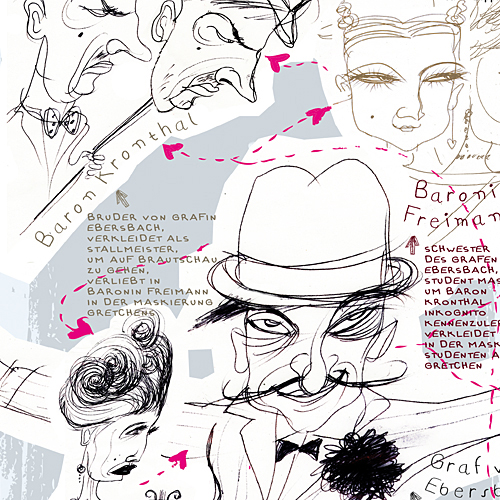 Baron Kronthal
BRUDER VON GRAFIN
EBERSBACH,
VERKLEIDET ALS
STALLMEISTER,
UM AUF BRAUTSCHAU
ZU GEHEN,
VERLIEBT IN
BARONIN FREIMANN
IN DER MASKIERUNG
GRETCHENS
Baroni
Freiman
SCHWESTER
DES GRAFEN
EBERSBACH,
STUDENT MAS
UM BARON
KRONTHAL
INKOGNITO
KENNENZULER
VERKLEIDET
IN DER MASK
STUDENTEN A
GRETCHEN
Graf
Ebersb